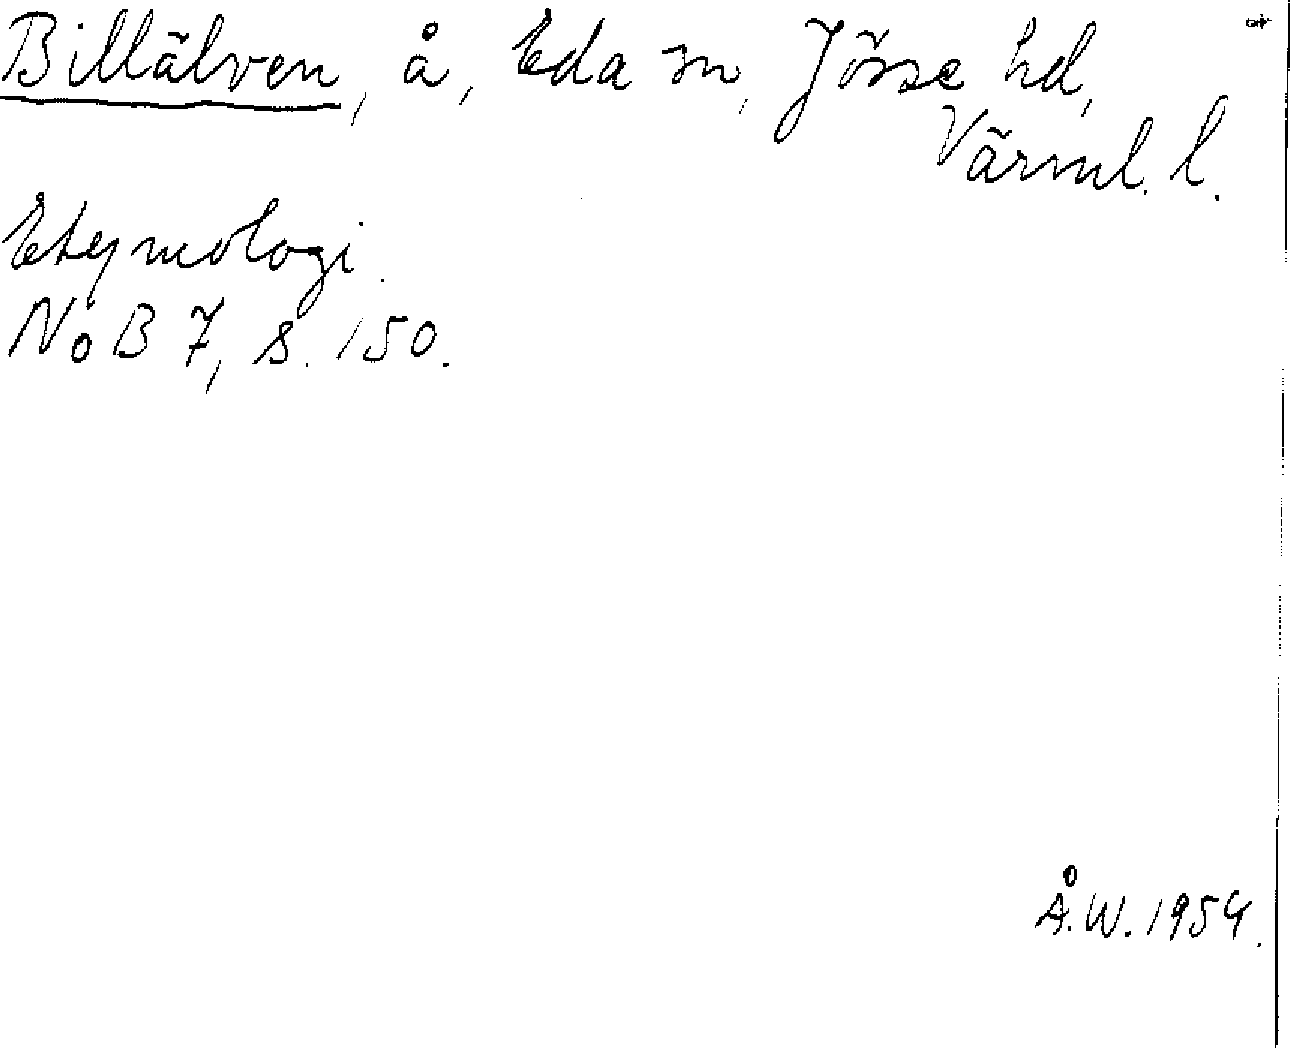 Billälven, å, Eda sn, Jösse hd,
Värml. l.
Etymologi.
NoB 7, s. 150.
Å.W. 1954.